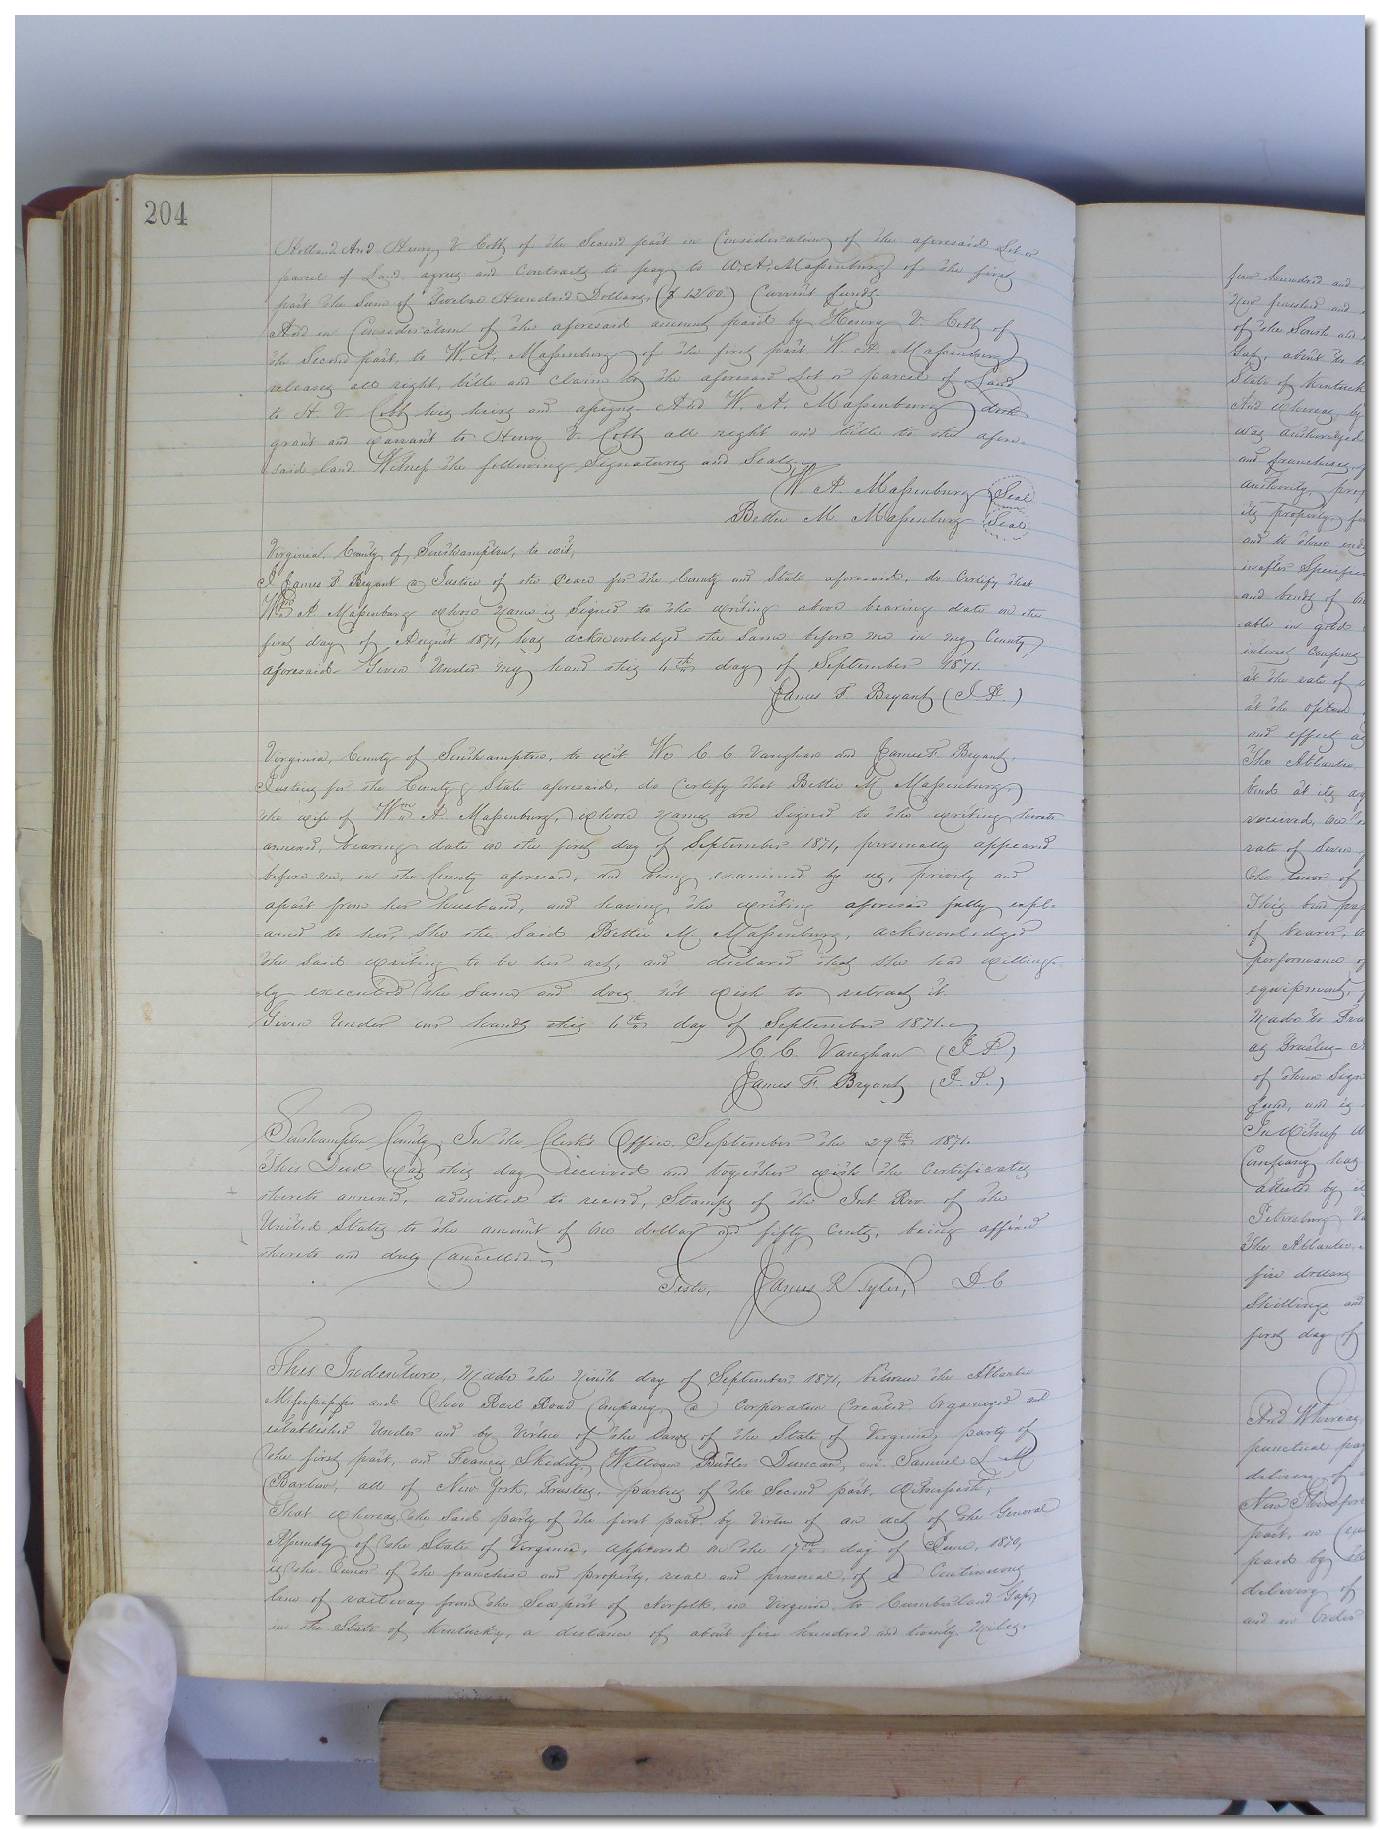 204
Holland And Henry V Cobb of the Second part in Consideration of the aforesaid Lot or
parcel of Land, agrees and Contracts to pay to W. A. Massenburg of the first
part the Sum of Twelve Hundred Dollars, ($1200) Current funds.
And in Consideration of the aforesaid amount paid by Henry V Cobb of
the Second part, to W. A. Massenburg of the first part W. A. Massenburg
releases all right, title and claim to the aforesaid Lot or parcel of Land
to H V Cobb his heirs and assigns And W. A. Massenburg doth
grant and warrant to Henry V. Cobb all right and title to the afore-
said land. Witness the following Signatures and Seals.
W. A. Massenburg Seal
Bettie M. Massenburg Seal
Virginia, County of Southampton, to wit,
I James F Bryant a Justice of the Peace for the County and State aforesaid, do Certify that
Wm A Massenburg whose name is Signed to the writing above bearing date on the
first day of August 1871, has acknowledged the Same before me in my County
aforesaid. Given Under my hand this 4th day of September 1871.
James F. Bryant (J. P.)
Virginia, County of Southampton, to wit We C C Vaughan and James F. Bryant,
Justices for the County & State aforesaid, do Certify that Bettie M Massenburg,
the wife of Wm A. Massenburg, whose names are Signed to the writing hereto
annexed, bearing date on the first day of September 1871, personally appeared
before us, in the County aforesaid, and being examined by us, privily and
apart from her husband, and having the writing aforesaid fully expl-
ained to her, She the Said Bettie M. Massenburg, acknowledged
the Said writing to be her act, and declared that she had willing-
ly executed the Same and does not wish to retract it.
Given Under our hands this 4th day of September 1871.
C. C. Vaughan (J P.)
James F. Bryant (J. P.)
Southampton County, In the Clerk's Office, September the 29th 1871.
This Deed was this day received and together with the Certificates
thereto annexed, admitted to record, Stamps of the Int. Rev. of the
United States to the amount of one dollar and fifty Cents, being affixed
thereto and duly Cancelled.
Teste, James R Tyler, D. C
This Indenture, Made the Ninth day of September, 1871, between the Atlantic
Mississippi and Ohio Rail Road Company, a Corporation Created Organized and
established Under and by Virtue of the Laws of the State of Virginia, party of
the first part, and Francis Skiddy, William Butler Duncan, and Samuel L M
Barlow, all of New York, Trustees, parties of the Second part, Witnesseth,
That whereas, the Said party of the first part, by Virtue of an act of the General
Assembly of the State of Virginia, approved on the 17th day of June, 1870,
is the Owner of the franchise and property, real and personal, of a Continuous
line of railway from the Seaport of Norfolk, in Virginia, to Cumberland Gap,
in the State of Kentucky, a distance of about five hundred and twenty Miles.
five hundred and
Now finished and
of the South and
Gap, about
State of Kentuck
And whereas, by
was authorized
and franchises,
authority,
its property,
and to
inafter Specifie
and bonds of
able in gold
interest Coupons
at the rate of
at the option
and effect, as
The Atlantic,
binds
received,
rate of Seven
the tenor of
This bond
of bearer,
performance of
equipment,
Made to Fra
as Trustees
of them Sign
fund, and is
In Witness W
Company has
attested by it
Petersburg Va
The Atlantic,
five dollars
Shillings and
first day of
And Whereas,
punctual pay
delivery of
Now Therefore
part, in
paid by the
delivery of
and in Order